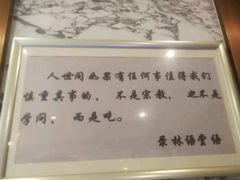 人世间如果有任何事值得我们
慎重其事的，不是宗教，也不是
学问，而是吃。
录林语堂语